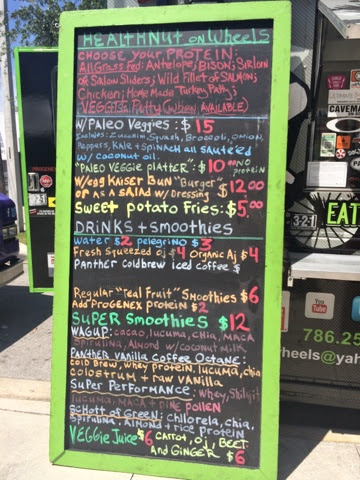 HEALTHNUT on WHEELS
CHOOSE YOUR PROTEIN:
All Grass Fed: Antelope; BISON; SIRLOIN
or Salow Sliders; Wild Fillet of SALMON;
Chicken; Home Made Turkey Patty;
VEGGIE Patty (when AVAILABLE)
W/PALEO Veggies: $15
Includes: Zucchini, Squash, Broccoli, ONION,
Peppers, KALE + SPINACH all sautéed
w/ coconut oil.
"PALEO VEGGIE PLATTER": $10.00 NO PROTEIN
W/EGG KAISER BUN "Burger" $12.00
or AS A SALAD W/ DRESSING
Sweet potato Fries: $5.00
DRINKS + Smoothies
water $2 pelegrino $3
Fresh Squeezed oj $4 Organic Aj $4
Panther coldbrew iced coffee $
Regular "real Fruit" Smoothies $6
Add PROGENEX Protein $2
SUPER Smoothies $12
WAGUP: cacao, lucuma, chia, MACA
Spirulina, Almond w/coconut milk
PANTHER Vanilla Coffee Octane:
Cold Brew, whey protein, lucuma, chia,
colostrum + raw vanilla
Super Performance: Whey, Shilajit
lucuma, maca + pine pollen
SCHOTT of Green: Chlorela, chia,
Spirulina, Almond + rice protein
VEGGie Juice $6 CARROT, OJ, BEET
And GINGER $6
CAVEM
321
EAT
You Tube
786.25
heels@yah